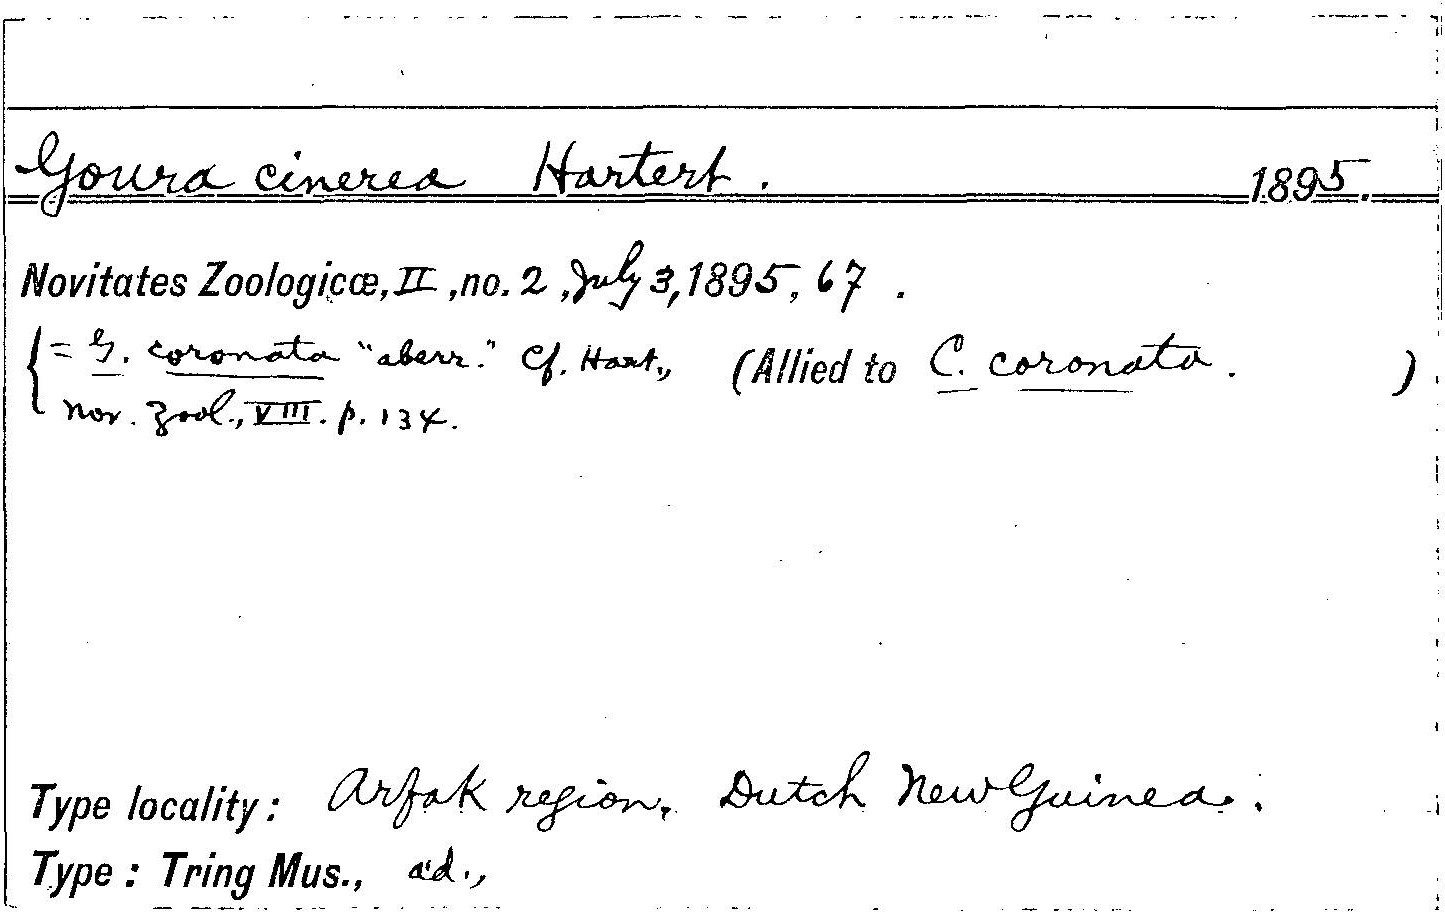 Goura cinerea Hartert. 1895.
Novitates Zoologicæ, II, no. 2, July 3, 1895, 67.
{= G. coronata "aberr." Cf. Hart., (Allied to C. coronata. )
Nov. Zool., VIII. p. 134.
Type locality: Arfak region, Dutch New Guinea.
Type: Tring Mus., ad.,